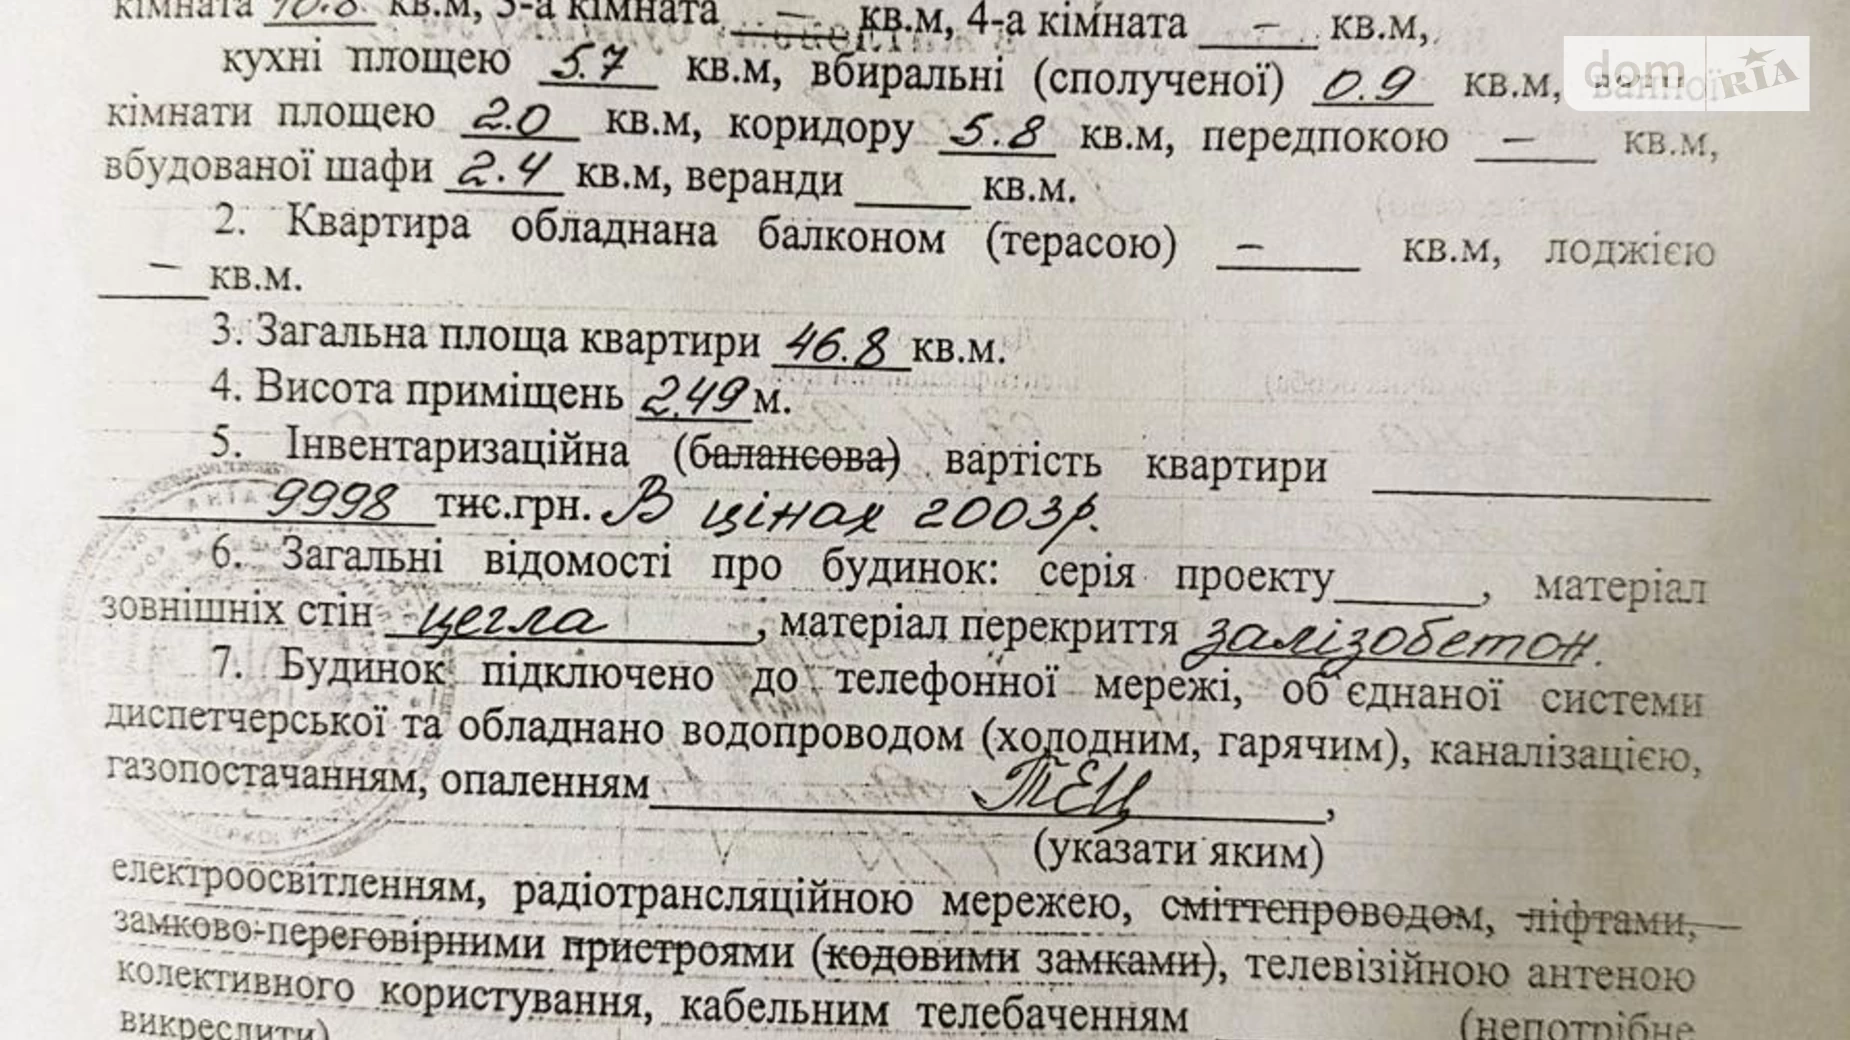 кімната 10.8 кв.м, 3-а кімната — кв.м, 4-а кімната — кв.м,
кухні площею 5.7 кв.м, вбиральні (сполученої) 0.9 кв.м, ванної
кімнати площею 2.0 кв.м, коридору 5.8 кв.м, передпокою — кв.м,
вбудованої шафи 2.4 кв.м, веранди ____ кв.м.
2. Квартира обладнана балконом (терасою) — кв.м, лоджією
— кв.м.
3. Загальна площа квартири 46.8 кв.м.
4. Висота приміщень 2.49 м.
5. Інвентаризаційна (балансова) вартість квартири
9998 тис.грн. В цінах 2003р.
6. Загальні відомості про будинок: серія проекту____, матеріал
зовнішніх стін цегла, матеріал перекриття залізобетон.
7. Будинок підключено до телефонної мережі, об'єднаної системи
диспетчерської та обладнано водопроводом (холодним, гарячим), каналізацією,
газопостачанням, опаленням ТЕЦ,
(указати яким)
електроосвітленням, радіотрансляційною мережею, сміттєпроводом, ліфтами,
замково-переговірними пристроями (кодовими замками), телевізійною антеною
колективного користування, кабельним телебаченням ____ (непотрібне
викреслити)
dom RIA